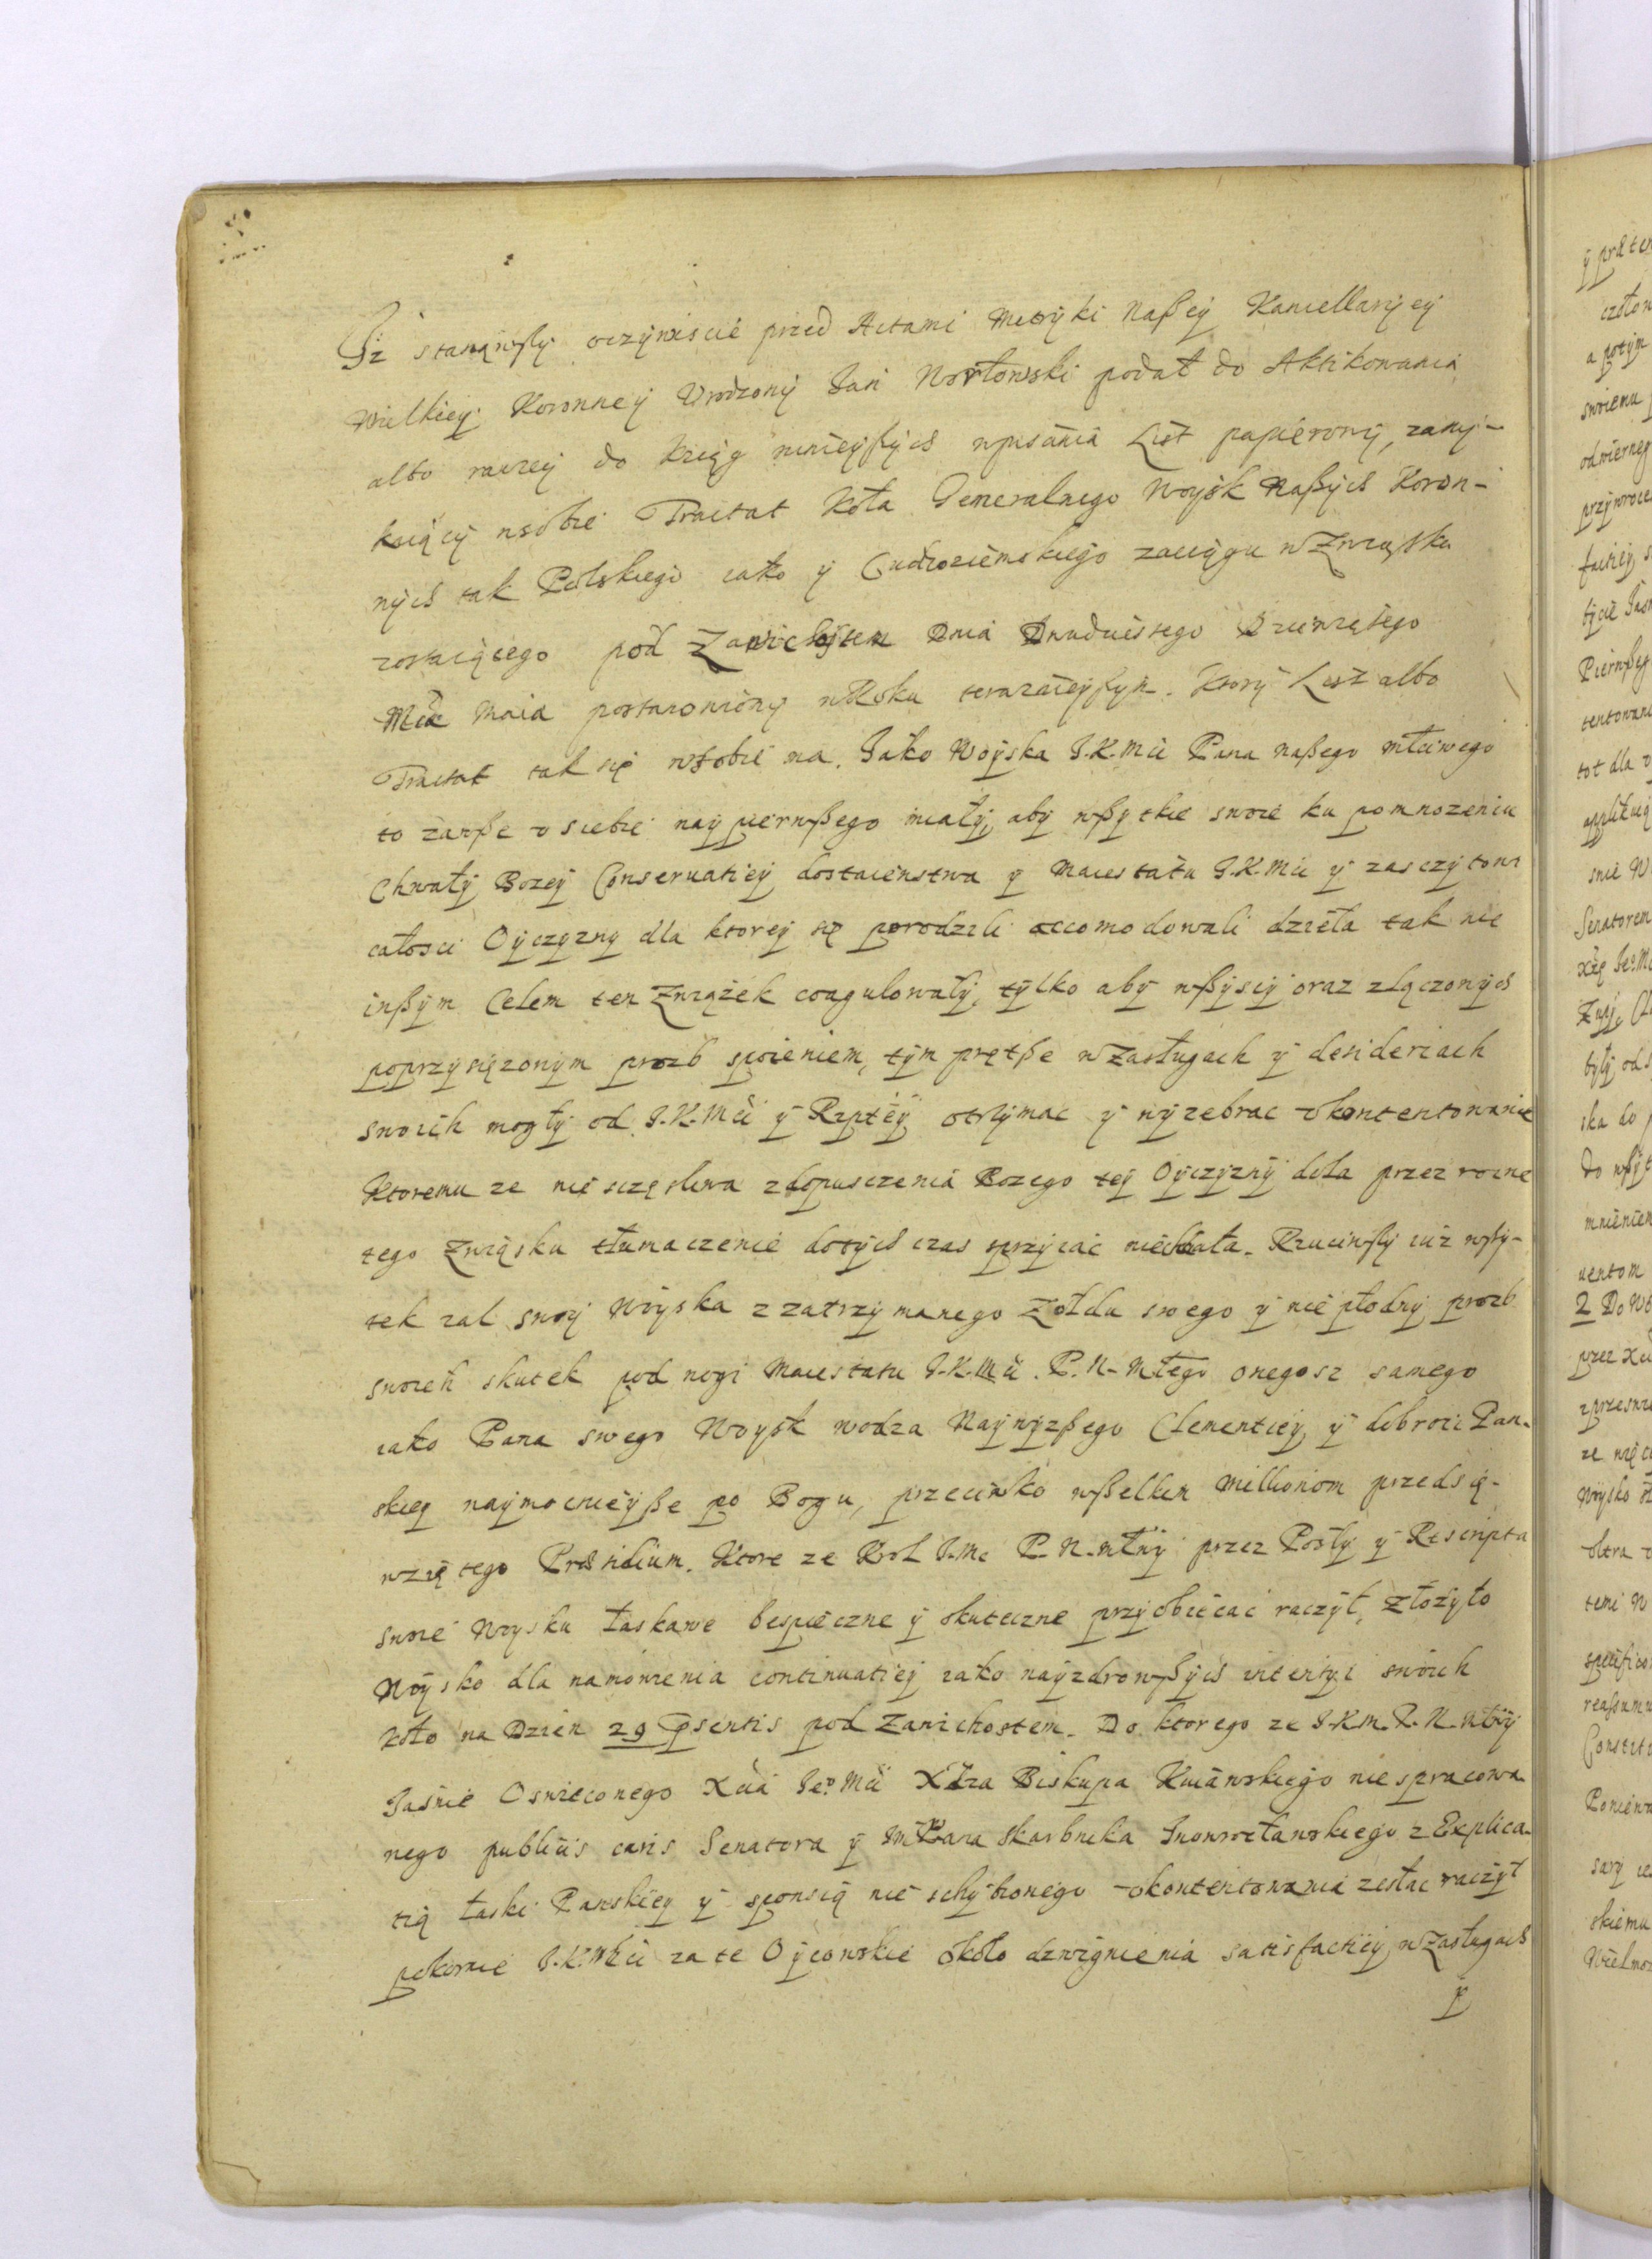 Iż stanąwszy oczywiscie przed Actami Metryki Naszey Kancellaryey
Wielkiey Koronney Urodzony Jan Norłowski podał do Aktikowania
albo raczey do Xiąg ninieyszych wpisania List papierowy, zamy-
kaiący wsobie Tractat Koła Generalnego Woysk Naszych Koron-
nych tak Polskiego iako y Cudzoziemskiego zaciągu w Związku
zostaiącego pod Zawichostem Dnia Dwudziestego Dziewiątego
Mca Maia postanowiony wRoku terazнieyszym. Ktory List albo
Tractat tak się wsobie ma. Jako Woyska J.K.Mci Pana Naszego Młciwego
to zawsze v siebie naypierwszego miały, aby wszytkie swoie ku pomnozeniu
Chwały Bozey Conservatiey dostaienstwa y Maiestatu J.K.Mci y zasczytowi
całosci Oyczyzny dla ktorey się porodzili accomodowali dzieła tak nie
inszym Celem ten Związek coagulowały, tylko aby wszyscy oraz złączonych
poprzysięzonym prozb spoieniem, tym prętsze w Zasługach y desideriach
swoich mogły od J.K.Mci y Rzptey otrzymac y wyzebrac vkontentowanie
Ktoremu ze nie sczęsliwa zdopusczenia Bozego tey Oyczyzny dola przez rozne
tego Związku tłumaczenie dotych czas sprzyiac niechciała. Rzuciwszy iuż wszy-
tek zal swoy Woyska z zatrzymanego Zołdu swego y nie płodny prozb
swoich skutek pod nogi Maiestatu J.K.Mci. P.N. Młego onegosz samego
iako Pana swego Woysk wodza Naywyzszego Clementiey y dobroci Pan-
skiey naymocnieysze po Bogu, przeciwko wszelkim Millionom przedsię-
wziętego Præsidium. Ktore ze Krol J.Mc P.N. Młwy przez Posły y Rescripta
swoie Woysku łaskawe bespieczne y skuteczne przyobiecac raczył, złożyło
Woysko dla namowienia continuatiey iako nayzdrowszych intentyi swoich
Koło na Dzien 29 Psentis pod Zawichostem. Do ktorego ze J.K.M. P.N. Młwy
Jaśnie Oswieconego Xcia Jeo Mci Xdza Biskupa Kuiawskiego niespracowa-
nego publicis curis Senatora y Mci Pana Skarbnika Inowrocławskiego z Explica-
tią łaski Panskiey y sponsią nie schybionego vkontentowania zesłac raczył
pokornie J.K.Mci za te Oycowskie około dzwignienia satisfactiey w Zasługach
y